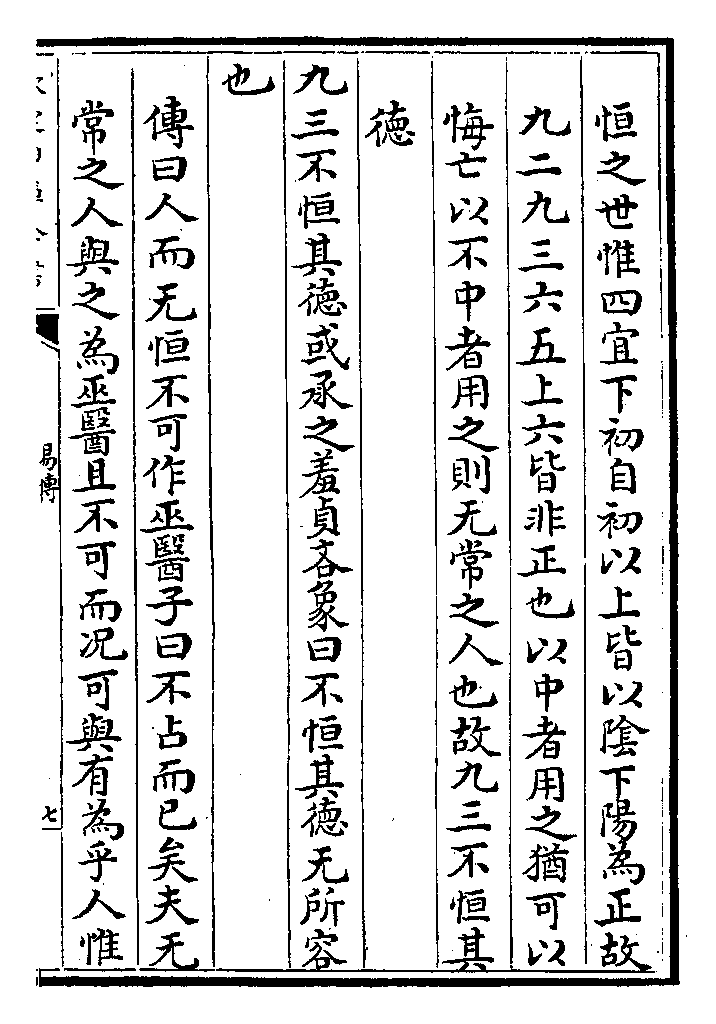 恒之世惟四宜下初自初以上皆以陰下陽為正故
九二九三六五上六皆非正也以中者用之猶可以
悔亡以不中者用之則无常之人也故九三不恒其
德
九三不恒其德或承之羞貞吝象曰不恒其德无所容
也
傳曰人而无恒不可作巫醫子曰不占而已矣夫无
常之人與之為巫醫且不可而况可與有為乎人惟
易傳
七